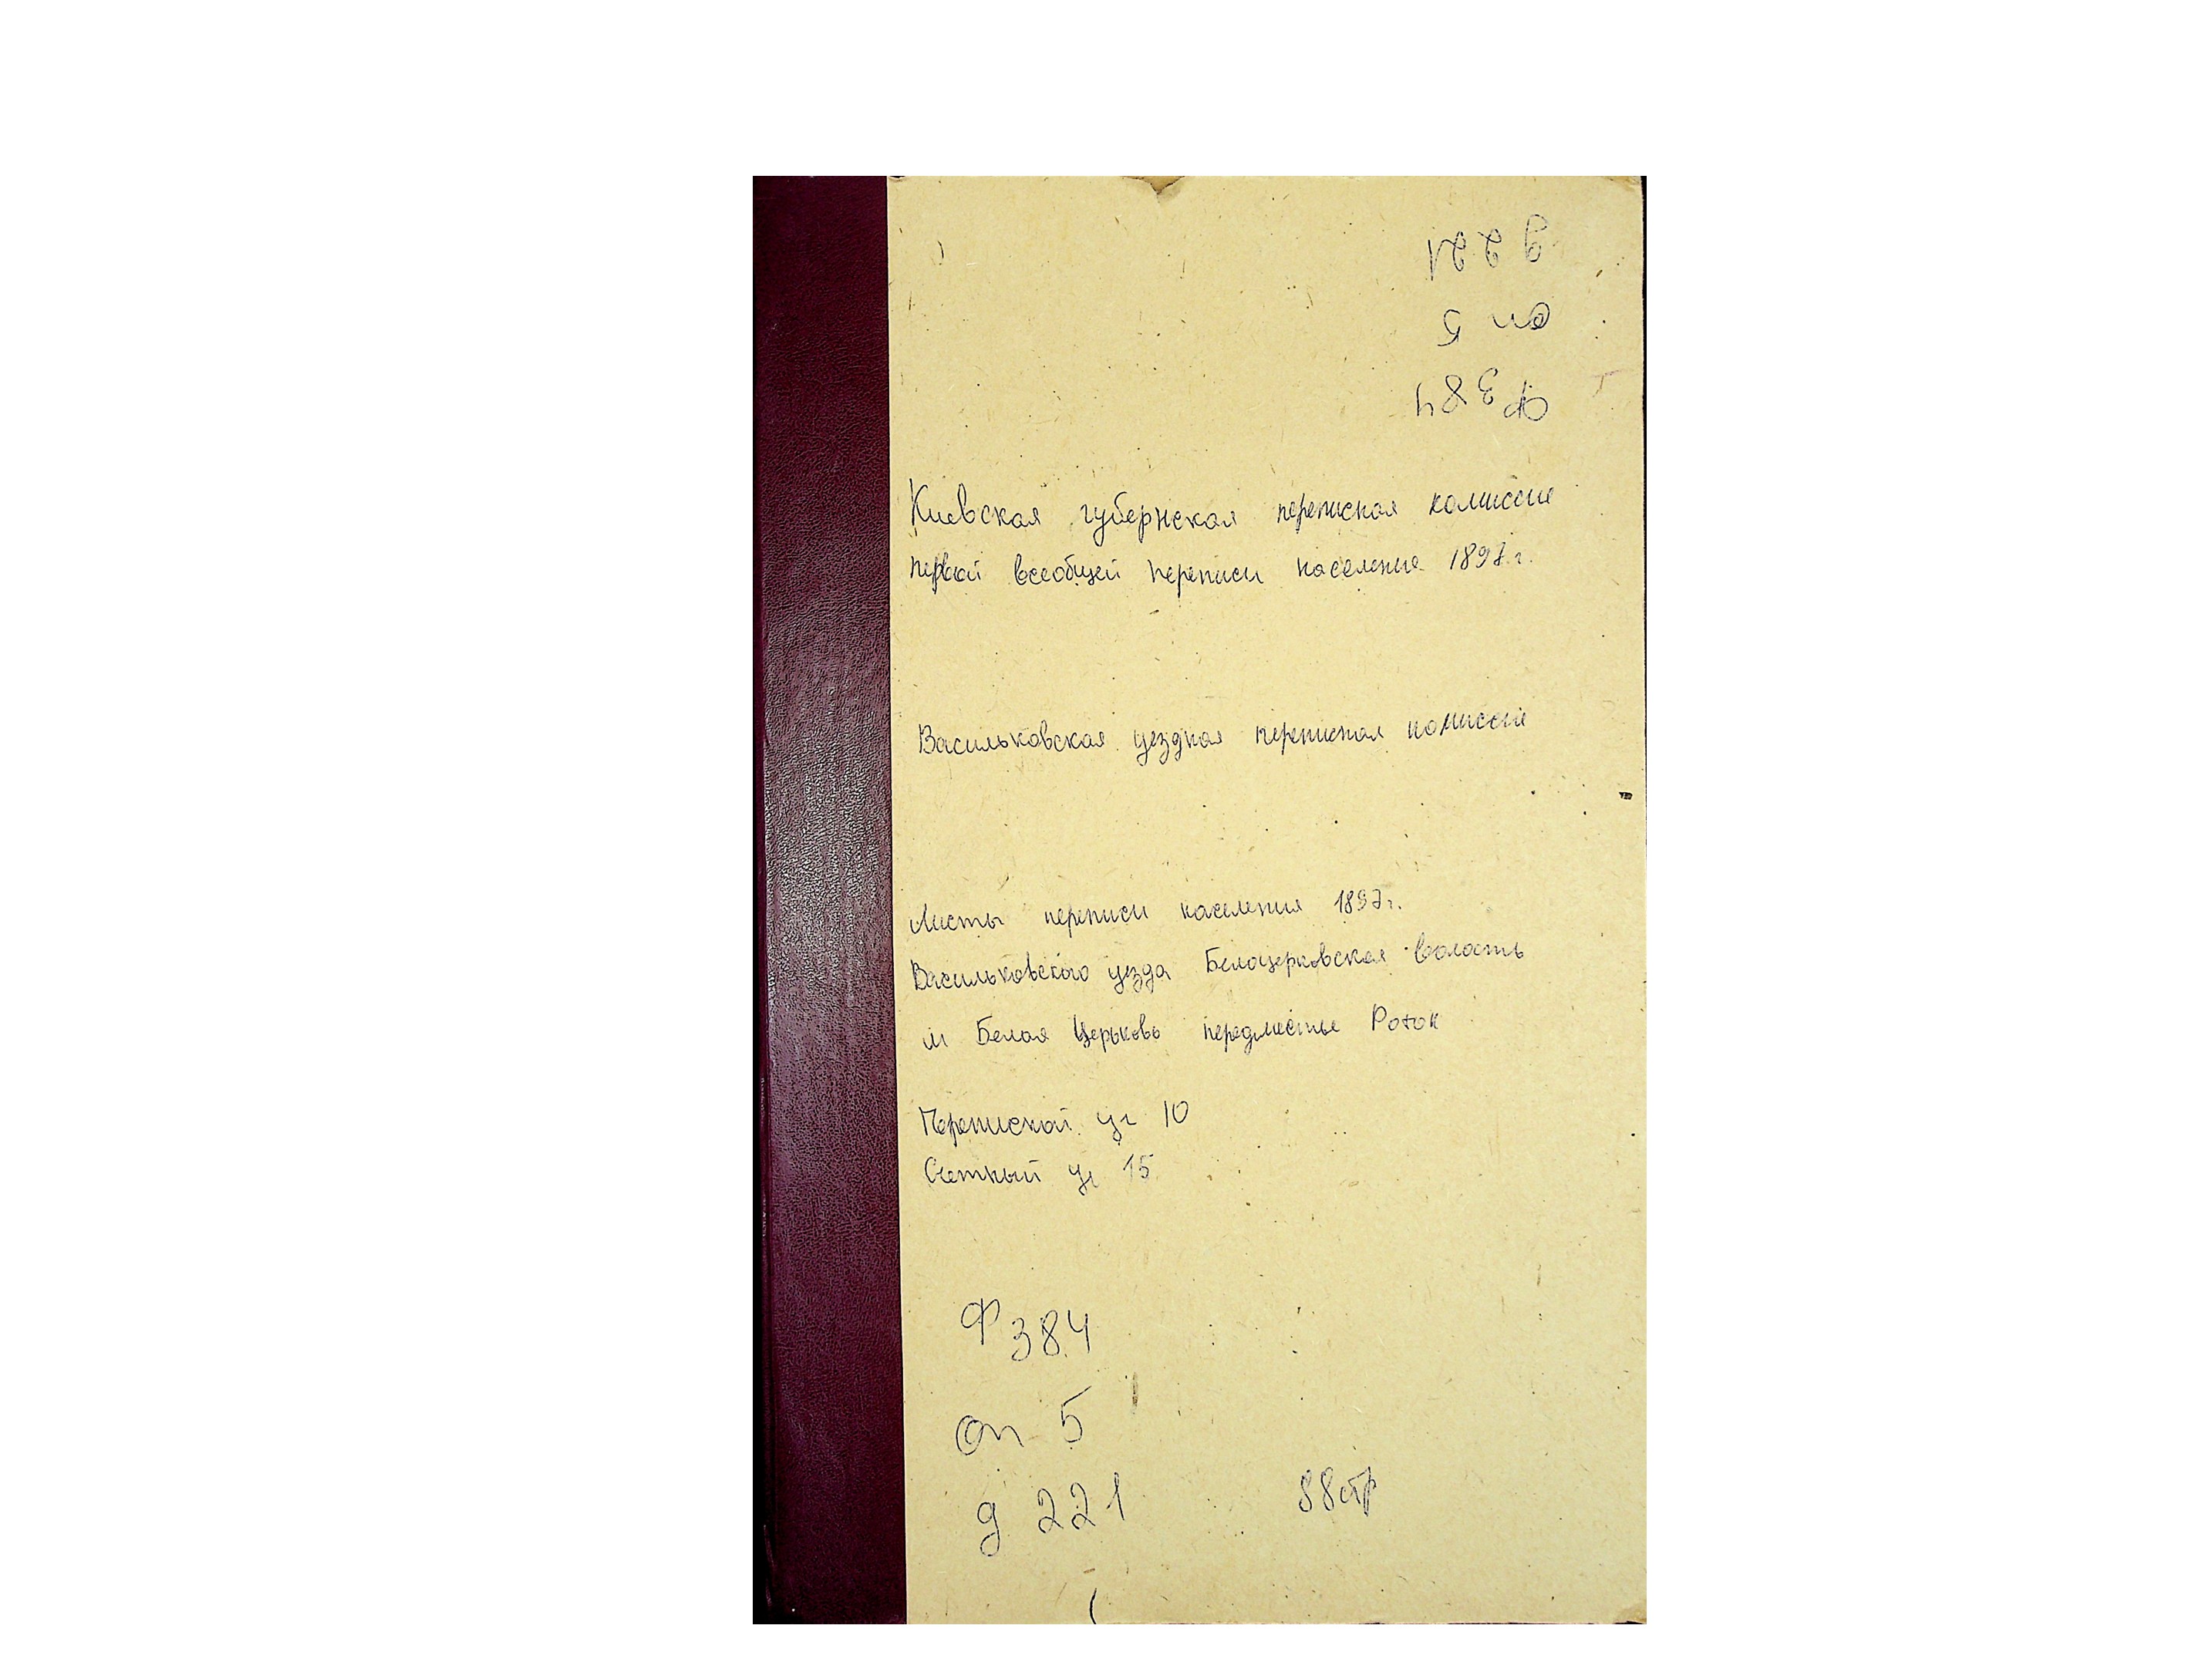 д 221
оп 5
Ф 384
Киевская губернская переписная комиссия
первой всеобщей переписи населения 1897 г.
Васильковская уездная переписная комиссия
Листы переписи населения 1897 г.
Васильковского уезда Белоцерковская волость
м Белая Церьковь передмистье Роток
Переписной уч 10
Счетный уч 15
Ф 384
оп 5
д 221
88 стр